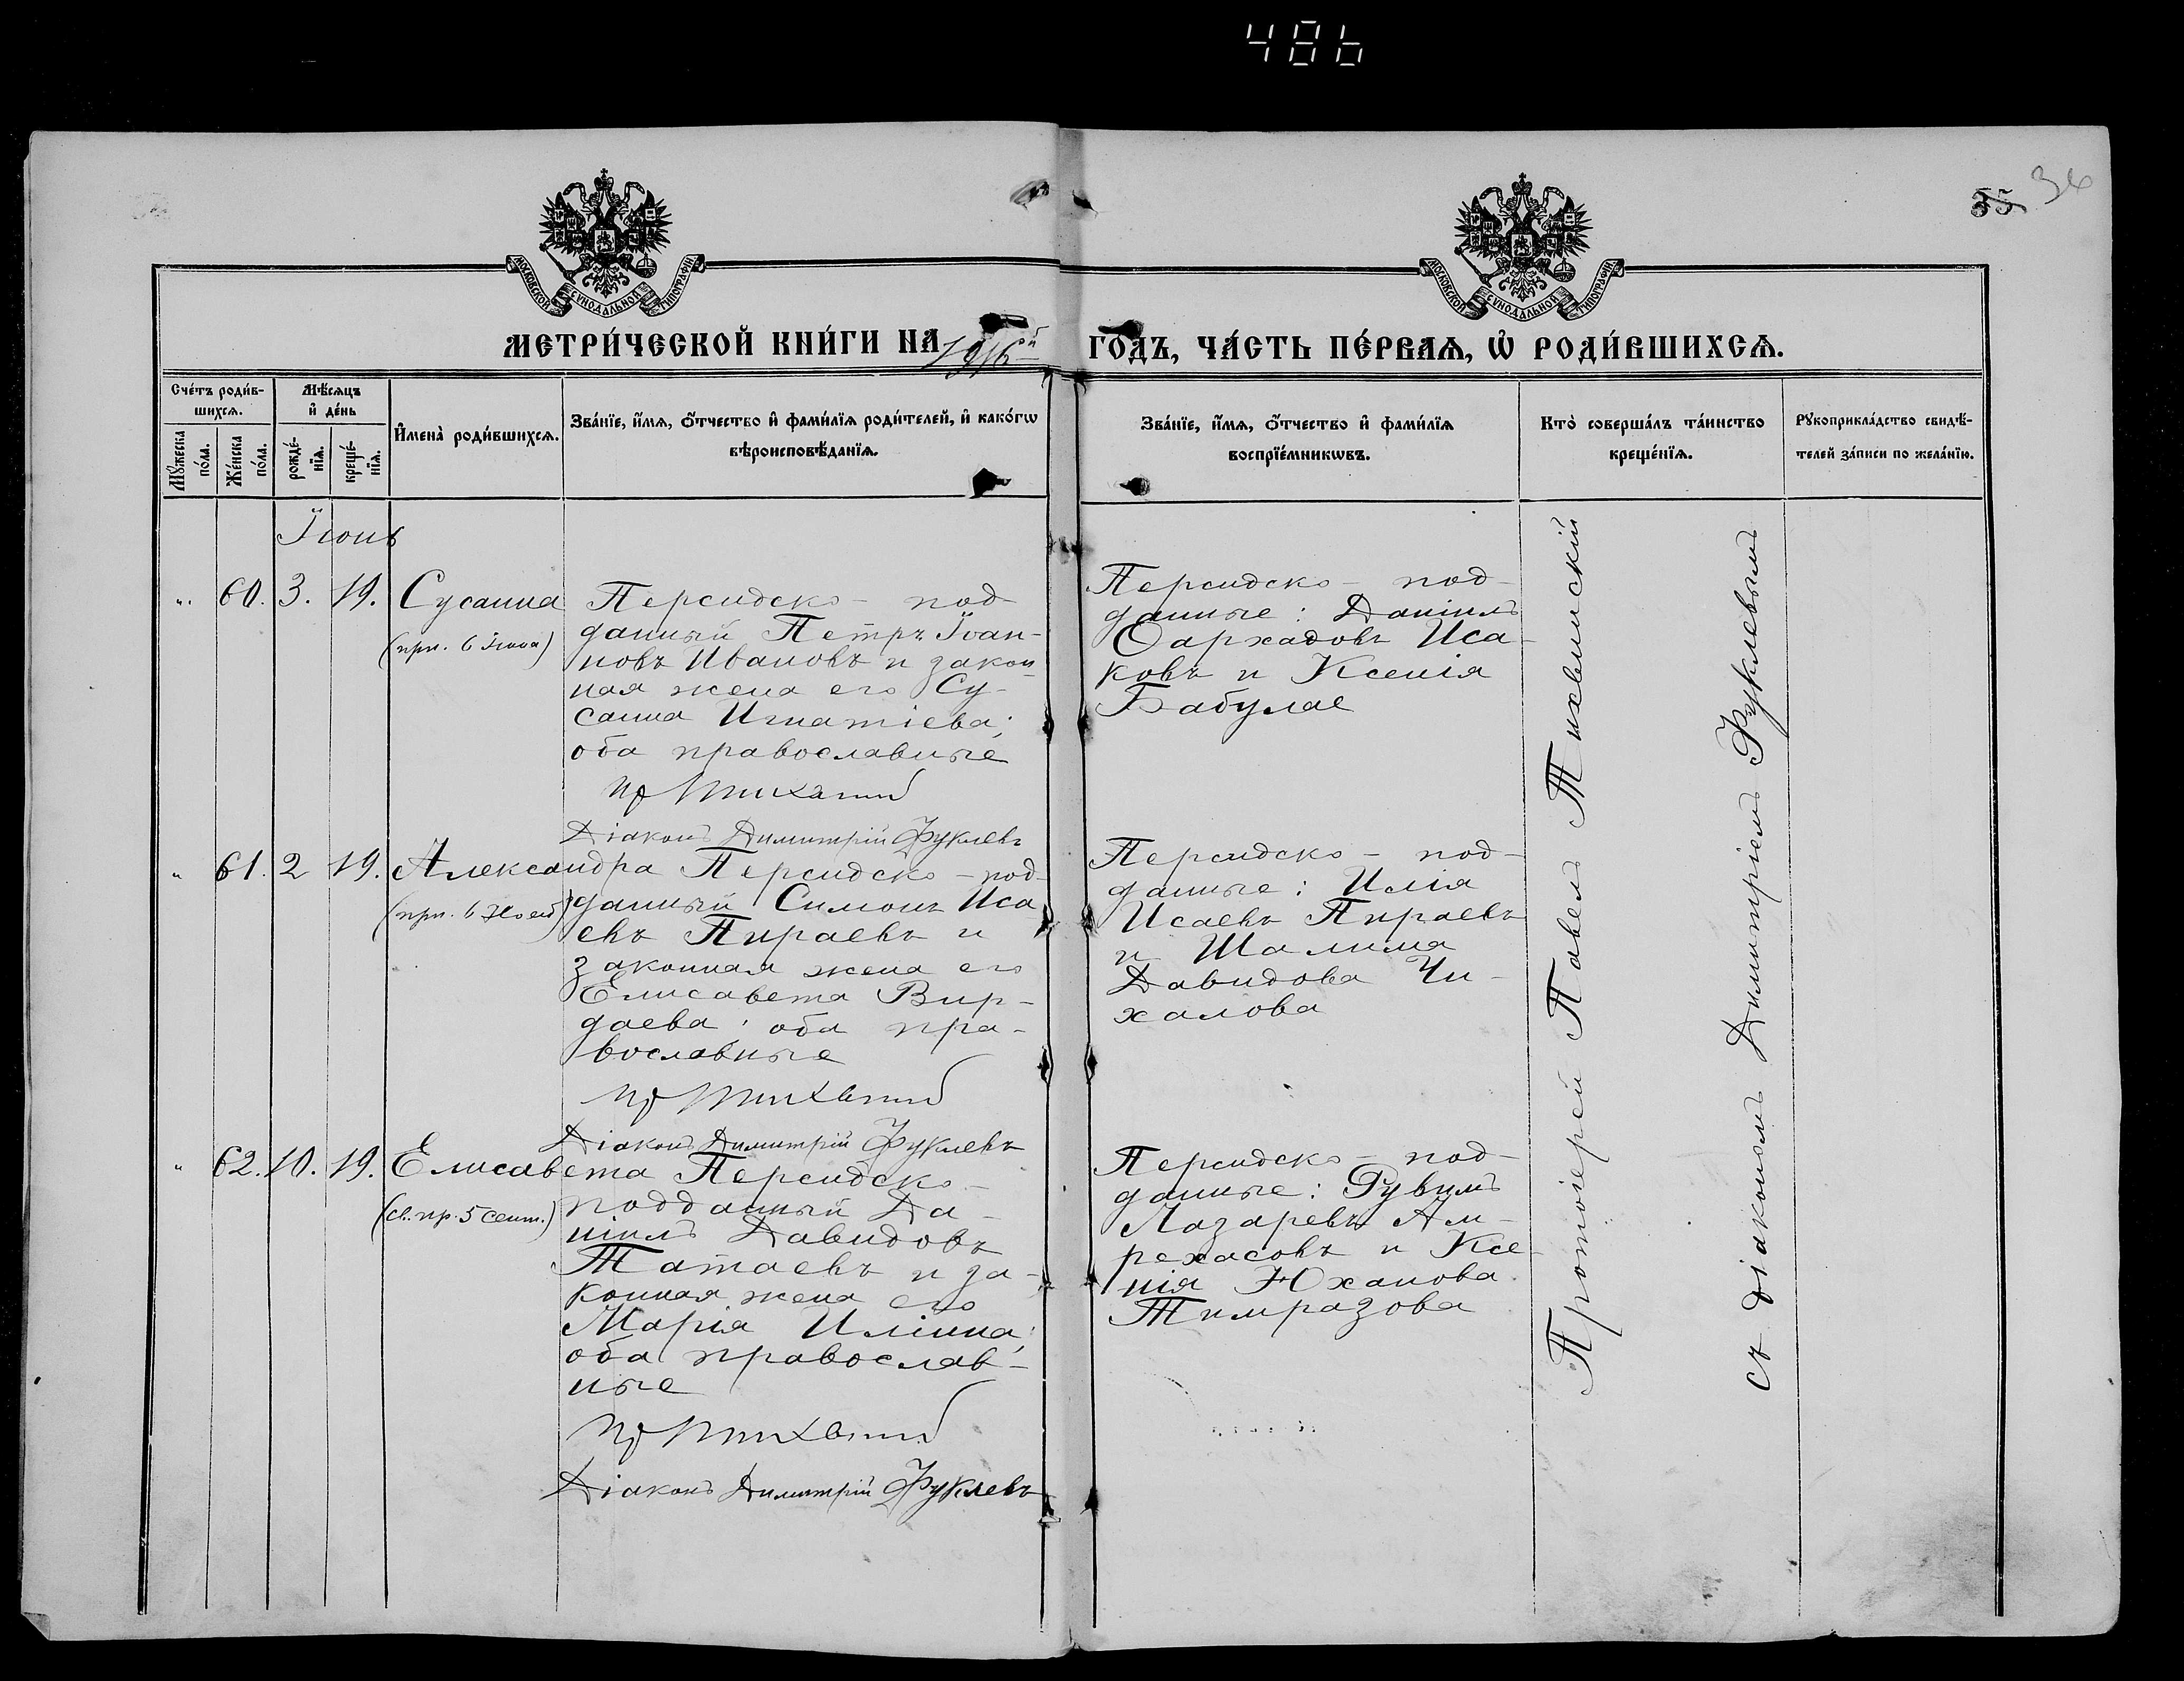 486
55 36
МОСКОВСКОЙ СѴНОДАЛЬНОЙ ТИПОГРАФІИ.
МОСКОВСКОЙ СѴНОДАЛЬНОЙ ТИПОГРАФІИ.
МЕТРИ́ЧЕСКОЙ КНИ́ГИ НА 1916й ГОДЪ, ЧА́СТЬ ПЕ́РВАЯ, Ѡ҆ РОДИ́ВШИХСЯ.
Сче́тъ роди́в-
шихся.
Мꙋ́жеска
по́ла.
Же́нска
по́ла.
Мѣ́сяцъ
и҆ де́нь
рожде́-
нїя.
креще́-
нїя.
И҆мена̀ роди́вшихся.
Зва́нїе, и҆́мя, ѻ҆́тчество и҆ фами́лїя роди́телей, и҆ како́гѡ
вѣроисповѣ́данїя.
Зва́нїе, и҆́мя, ѻ҆́тчество и҆ фами́лїя
воспрїе́мникѡвъ.
Кто̀ соверша́лъ та́инство
креще́нїя.
Рꙋкоприкла́дство свидѣ́-
телей за́писи по жела́нїю.
Іюнь
„ 60. 3. 19. Сусанна
(прп. 6 Іюня)
Персидско-под-
данный Петръ Іоан-
новъ Ивановъ и закон-
ная жена его Су-
санна Игнатіева;
оба православные
Діаконъ Димитрій Фуклевъ
Персидско-под-
данные: Даніилъ
Сархадовъ Иса-
ковъ и Ксенія
Бабулае
„ 61. 2 19. Александра
Персидско-под-
данный Симонъ Иса-
евъ Пираевъ и
законная жена его
Елисавета Вир-
даева; оба пра-
вославные
Діаконъ Димитрій Фуклевъ
Персидско-под-
данные: Илія
Исаевъ Пираевъ
и Шалима
Давидова Чи-
халова
„ 62. 10. 19. Елисавета
(св. пр. 5 сент.)
Персидско-
подданный Да-
ніилъ Давидовъ
Татаевъ и за-
конная жена его
Марія Иліина;
оба православ-
ные
Діаконъ Димитрій Фуклевъ
Персидско-под-
данные: Рувимъ
Лазаревъ Ам-
рехасовъ и Ксе-
нія Юханова
Тимразова
Протоіерей Павелъ Тихвинскій
съ діакономъ Димитріемъ Фуклевымъ